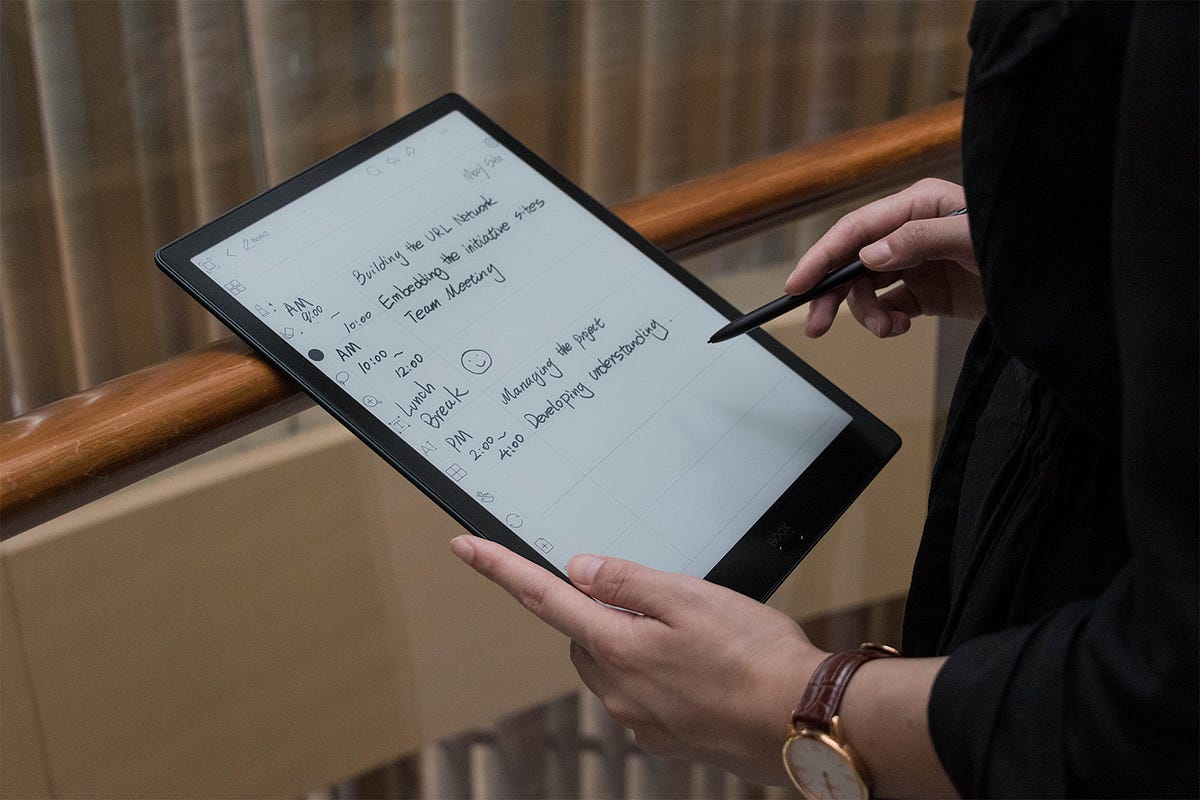 Note2
May 5th
AM
9:00 ~
10:00
Building the URL Network
Embedding the initiative sites
Team Meeting
AM
10:00 ~
12:00
Lunch
Break
PM
2:00 ~
4:00
Managing the project
Developing understanding.
BOOX